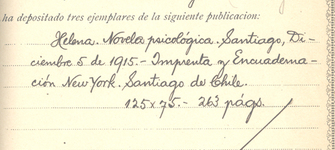 ha depositado tres ejemplares de la siguiente publicacion:
Helena. Novela psicológica. Santiago, Di-
ciembre 5 de 1915.- Imprenta y Encuaderna-
ción New York. Santiago de Chile.
125 x 75. - 263 págs.